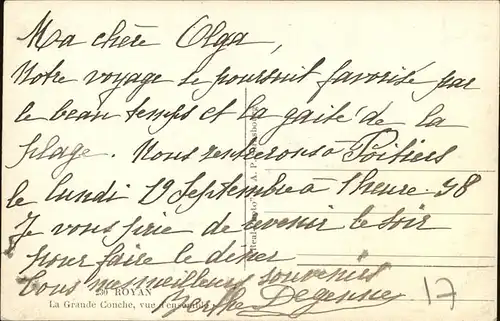 Ma chère Olga,
Notre voyage se poursuit favorisé par
le beau temps et la gaité de la
plage. Nous rentrerons a Poitiers
le lundi 19 Septembre a 1 heure 38
Je vous prie de venir le soir
pour faire le diner
Tous mes meilleurs souvenirs
230 ROYAN
La Grande Conche, vue d'ensemble
Berthe Degenne
17